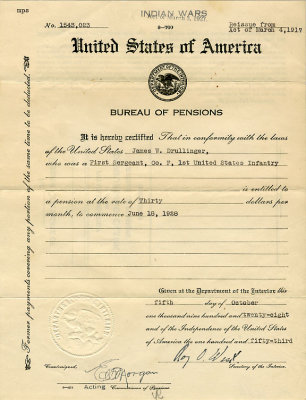 mps
INDIAN WARS
Act of March 3, 1927.
No. 1543,023
3-700
Reissue from
Act of March 4, 1917
United States of America
BUREAU OF PENSIONS
It is hereby certified That in conformity with the laws
of the United States James W. Drullinger,
who was a First Sergeant, Co. F, 1st United States Infantry
is entitled to
a pension at the rate of Thirty dollars per
month, to commence June 18, 1928
Given at the Department of the Interior this
fifth day of October
one thousand nine hundred and twenty-eight
and of the Independence of the United States
of America the one hundred and fifty-third
Roy O. West
Secretary of the Interior.
Countersigned,
Morgan
Acting Commissioner of Pensions
Former payments covering any portion of the same time to be deducted.